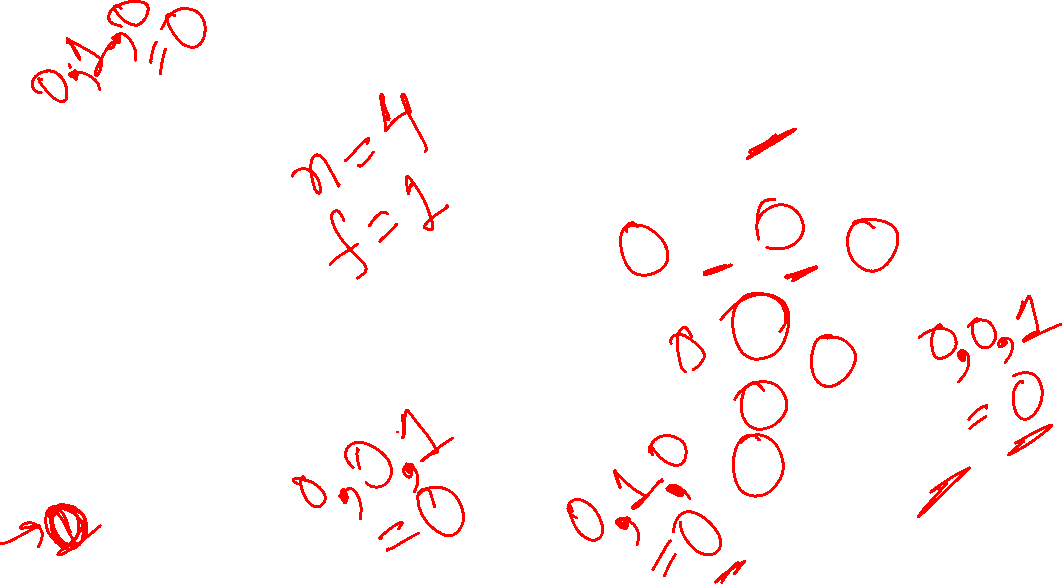 0,1,0
=0
n=4
f=1
0 0 0
0 0 0
0
0
0,0,1
=0
0,0,1
=0
0,1,0
=0
0